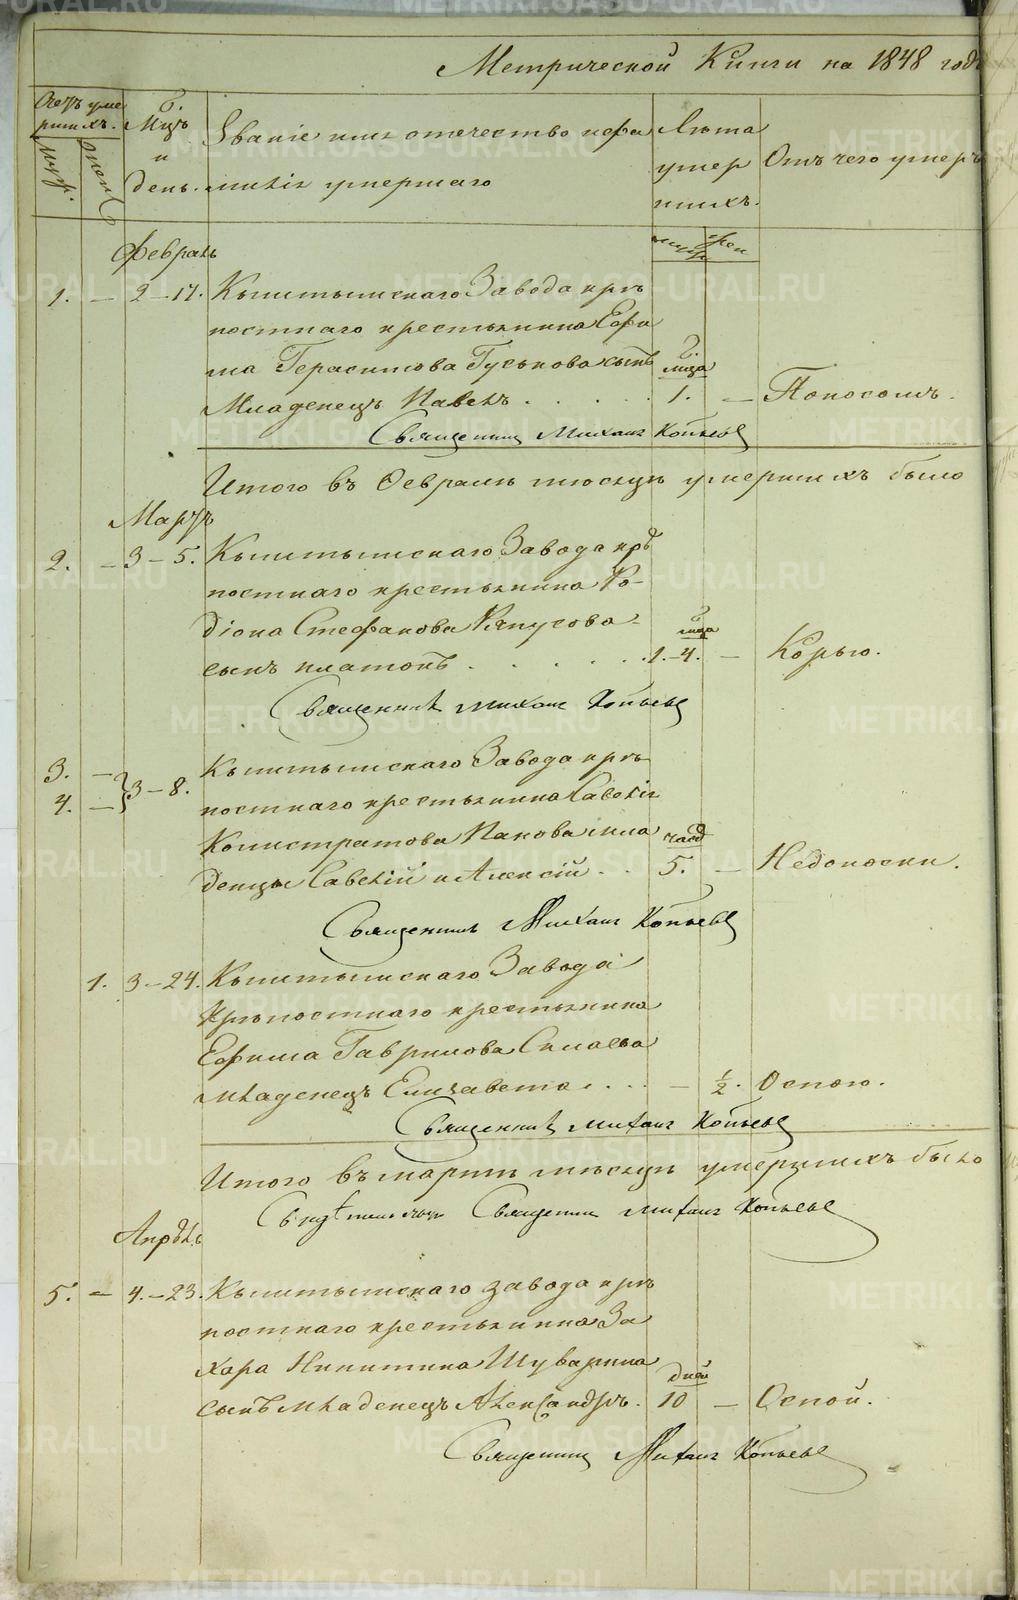 Метрической Книги на 1848 годъ
Счетъ уме
ршихъ.
Муж.
Женс
Мцъ
и
день.
Званіе имя отечество и фа
милія умершаго
Лѣта
умер
шихъ.
муж
жен
Отъ чего умеръ
Февраль
1. — 2 — 17. Кыштымскаго Завода крѣ
постнаго крестьянина Ефи
ма Герасимова Гуськова сынъ
Младенецъ Павелъ . . . . . мца 1. — Поносомъ.
Священникъ Михаилъ Копьевъ
Итого въ Февралѣ мѣсяцѣ умершихъ было
Мартъ
2. — 3 — 5. Кыштымскаго Завода крѣ
постнаго крестьянина Ро-
діона Стефанова Япусова
сынъ Платонъ . . . . . . 1. — мца 4. — Корью.
Священникъ Михаилъ Копьевъ
3. —
4. — } 3 — 8. Кыштымскаго Завода крѣ
постнаго крестьянина Савелія
Калистратова Панова мла
денцы Савелій и Алексій . . часъ 5. — Недоноски.
Священникъ Михаилъ Копьевъ
1. 3 — 24. Кыштымскаго Завода
Крѣпостнаго крестьянина
Ефима Гаврилова Силаева
младенецъ Елизавета . . . — 1/2. Оспою.
Священникъ Михаилъ Копьевъ
Итого въ мартѣ мѣсяцѣ умершихъ было
Священникъ Михаилъ Копьевъ
Апрѣль
5. — 4. — 23. Кыштымскаго завода крѣ
постнаго крестьянина За
хара Никитина Шуварина
сынъ младенецъ Александръ. дней 10 — Оспой.
Священникъ Михаилъ Копьевъ
METRIKI.GASO-URAL.RU